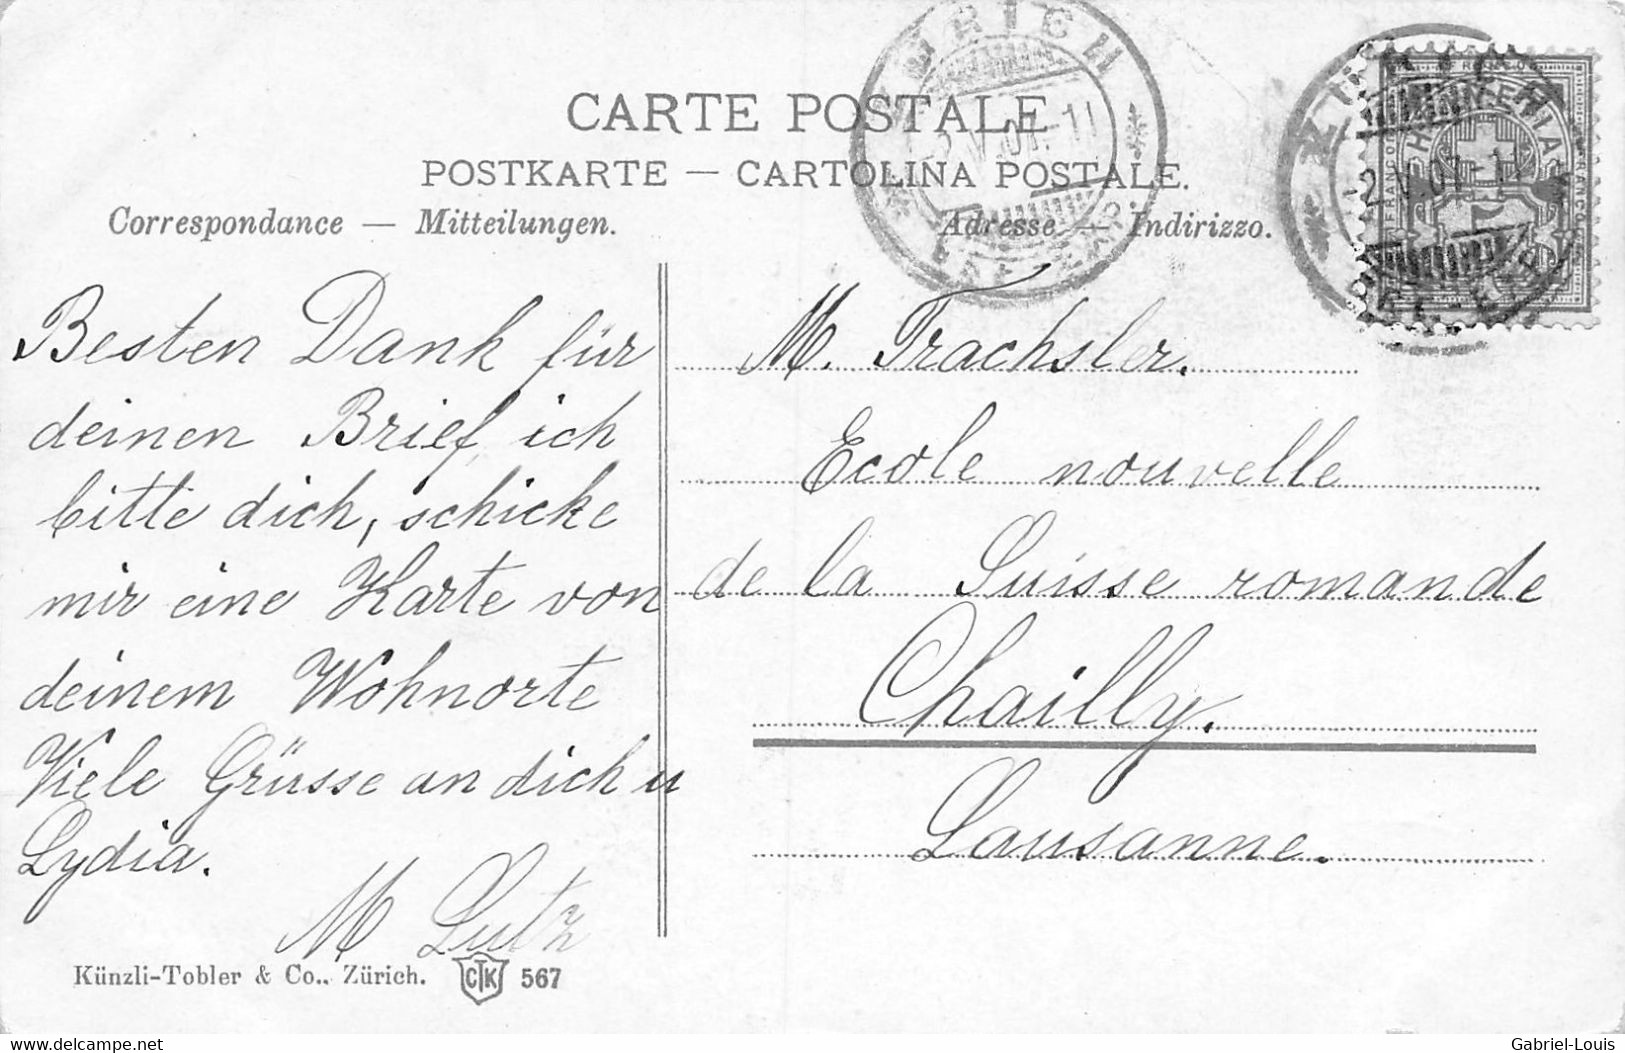 CARTE POSTALE
POSTKARTE — CARTOLINA POSTALE.
Correspondance — Mitteilungen.
Adresse — Indirizzo.
ZÜRICH
HELVETIA
FRANCO
5
Besten Dank für
deinen Brief, ich
bitte dich, schicke
mir eine Karte von
deinem Wohnorte
Viele Grüsse an dich u
Lydia.
M Lutz
M. Trachsler.
Ecole nouvelle
de la Suisse romande
Chailly.
Lausanne.
Künzli-Tobler & Co., Zürich. CTK 567
delcampe.net
Gabriel-Louis